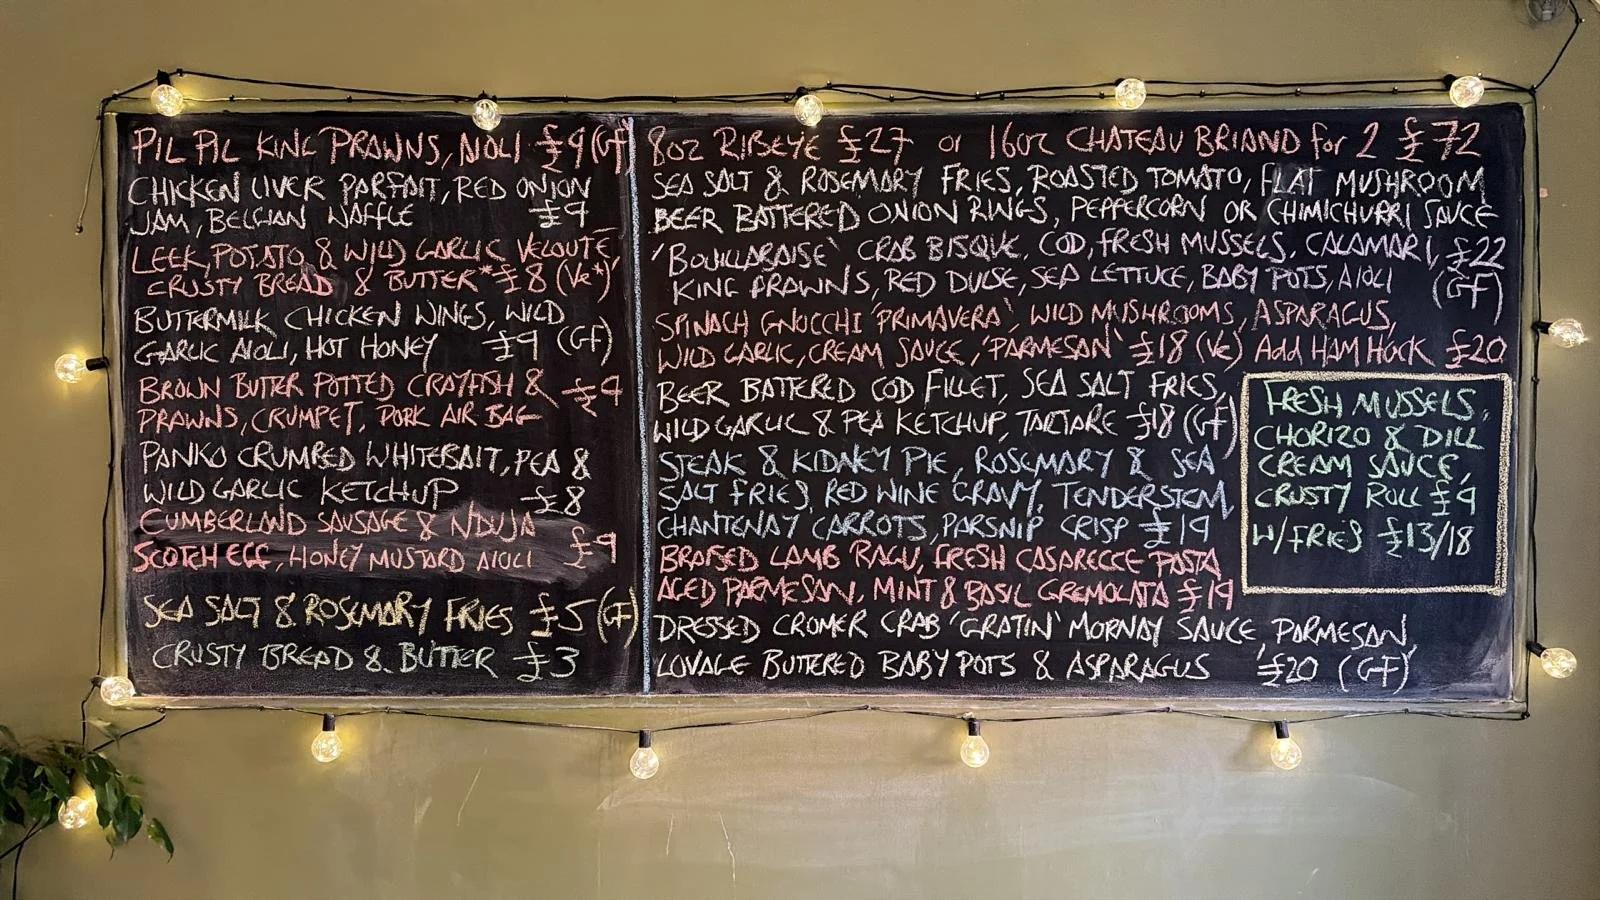 PIL PIL KING PRAWNS, AIOLI £9 (GF)
CHICKEN LIVER PARFAIT, RED ONION
JAM, BELGIAN WAFFLE £9
LEEK, POTATO & WILD GARLIC VELOUTE,
CRUSTY BREAD & BUTTER* £8 (Ve*)
BUTTERMILK CHICKEN WINGS, WILD
GARLIC AIOLI, HOT HONEY £9 (GF)
BROWN BUTTER POTTED CRAYFISH & £9
PRAWNS, CRUMPET, PORK AIR BAG
PANKO CRUMBED WHITEBAIT, PEA &
WILD GARLIC KETCHUP £8
CUMBERLAND SAUSAGE & NDUJA
SCOTCH EGG, HONEY MUSTARD AIOLI £9
SEA SALT & ROSEMARY FRIES £5 (GF)
CRUSTY BREAD & BUTTER £3
8oz RIBEYE £27 or 16oz CHATEAU BRIAND for 2 £72
SEA SALT & ROSEMARY FRIES, ROASTED TOMATO, FLAT MUSHROOM
BEER BATTERED ONION RINGS, PEPPERCORN OR CHIMICHURRI SAUCE
'BOUILLABAISE' CRAB BISQUE, COD, FRESH MUSSELS, CALAMARI, £22
KING PRAWNS, RED DULSE, SEA LETTUCE, BABY POTS, AIOLI (GF)
SPINACH GNOCCHI 'PRIMAVERA', WILD MUSHROOMS, ASPARAGUS,
WILD GARLIC, CREAM SAUCE, 'PARMESAN' £18 (Ve) Add HAM HOCK £20
BEER BATTERED COD FILLET, SEA SALT FRIES,
WILD GARLIC & PEA KETCHUP, TARTARE £18 (GF)
STEAK & KIDNEY PIE, ROSEMARY & SEA
SALT FRIES, RED WINE GRAVY, TENDERSTEM,
CHANTENAY CARROTS, PARSNIP CRISP £19
BRAISED LAMB RAGU, FRESH CASARECCE PASTA
AGED PARMESAN, MINT & BASIL GREMOLATA £19
DRESSED CROMER CRAB 'GRATIN' MORNAY SAUCE, PARMESAN,
LOVAGE BUTTERED BABY POTS & ASPARAGUS £20 (GF)
FRESH MUSSELS,
CHORIZO & DILL
CREAM SAUCE,
CRUSTY ROLL £9
W/FRIES £13/18